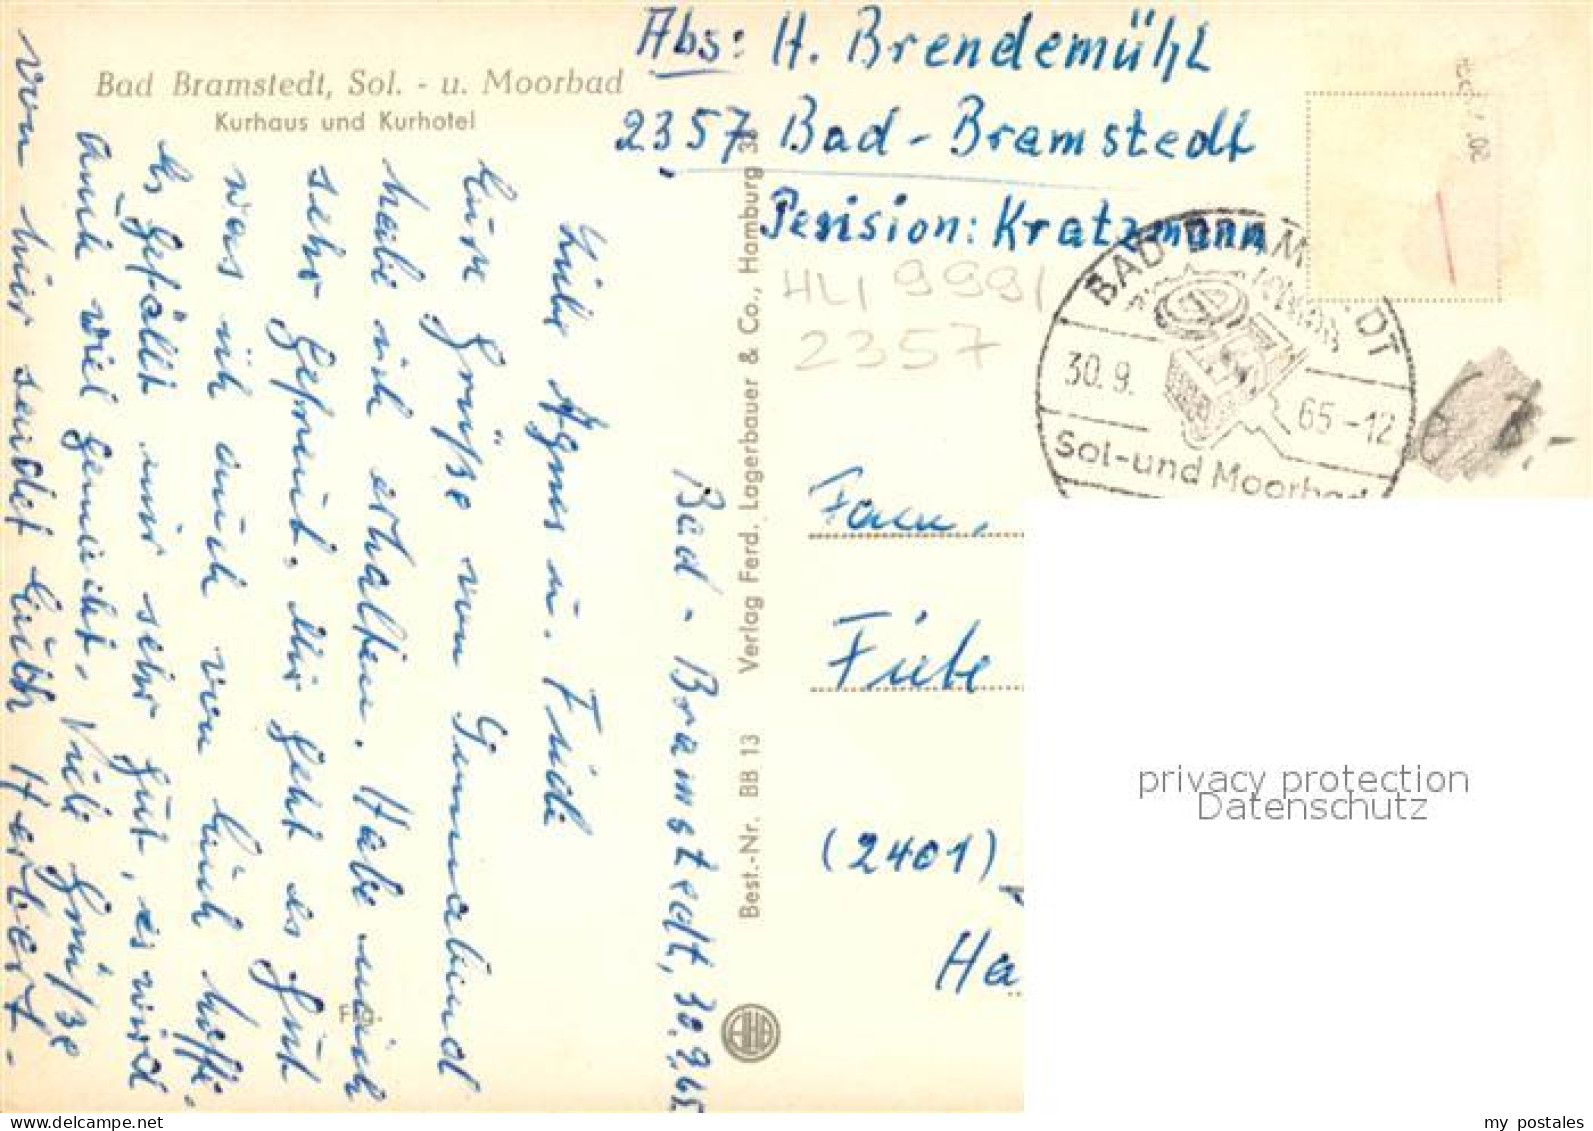 Bad Bramstedt, Sol. - u. Moorbad
Kurhaus und Kurhotel
Abs: H. Brendemühl
2357 Bad-Bramstedt
Pension: Kratzmann
HLI 9991
2357
BAD BRAMSTEDT
30.9.
65-12
Sol-und Moorbad
Bad - Bramstedt, 30.9.65
Liebe Agnes u. Fiede
Eure Grüße vom Sonnabend
habe ich erhalten. Habe mich
sehr gefreut. Mir geht es gut
was ich auch von Euch hoffe.
Es gefällt mir sehr gut, es wird
auch viel gemacht. Viele Grüße
von hier sendet Euch Herbert.
Fam.
Fiebe
(2401)
Ha
Best.-Nr. BB 13 Verlag Ferd. Lagerbauer & Co., Hamburg 36
privacy protection
Datenschutz
my postales